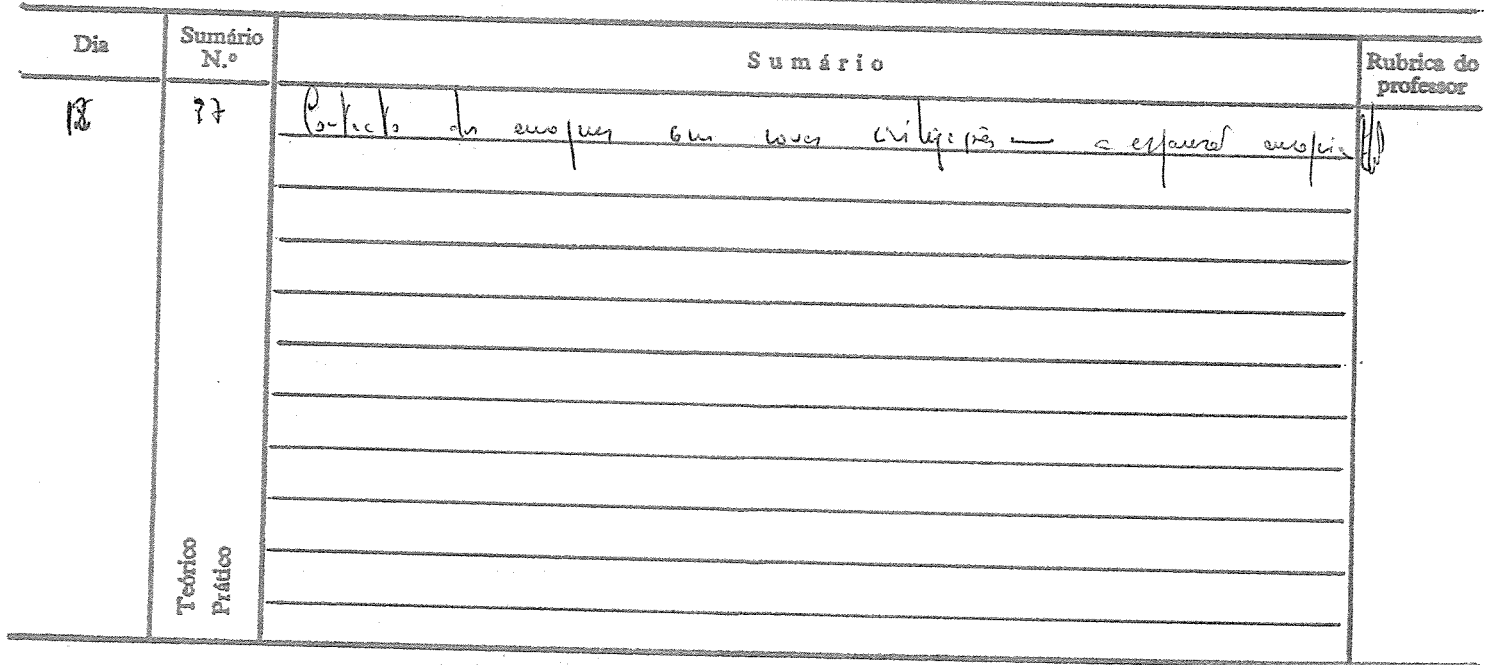 Dia
Sumário
N.º
Sumário
Rubrica do
professor
18
Contacto dos europeus com novas civilizações — a expansão europeia
Teórico
Prático